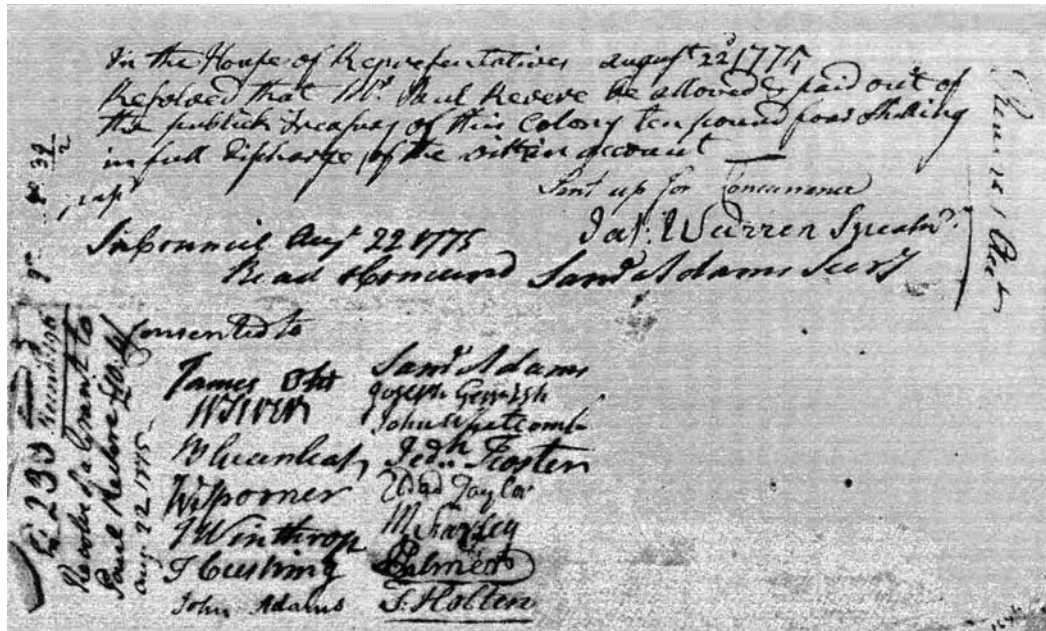 In the House of Representatives august 22d 1775
Resolved that Mr. Paul Revere be allowed & paid out of
the publick treasury of this Colony ten pound four Shilling
in full discharge of the within account
Sent up for Concurrence
Jas. Warren Speakr.
In Council Augt 22 1775
Read & Concurd Saml Adams Secry
Consented to
James Otis
W Sever
B Greenleaf
W Spooner
J Winthrop
T Cushing
John Adams
Saml Adams
Joseph Gerrish
John Whetcomb
Jedh Foster
Eldad Taylor
M Farley
Palmer
S. Holten
233
Resolve of a Grant to
Paul Revere £10.4
Aug 22 1775